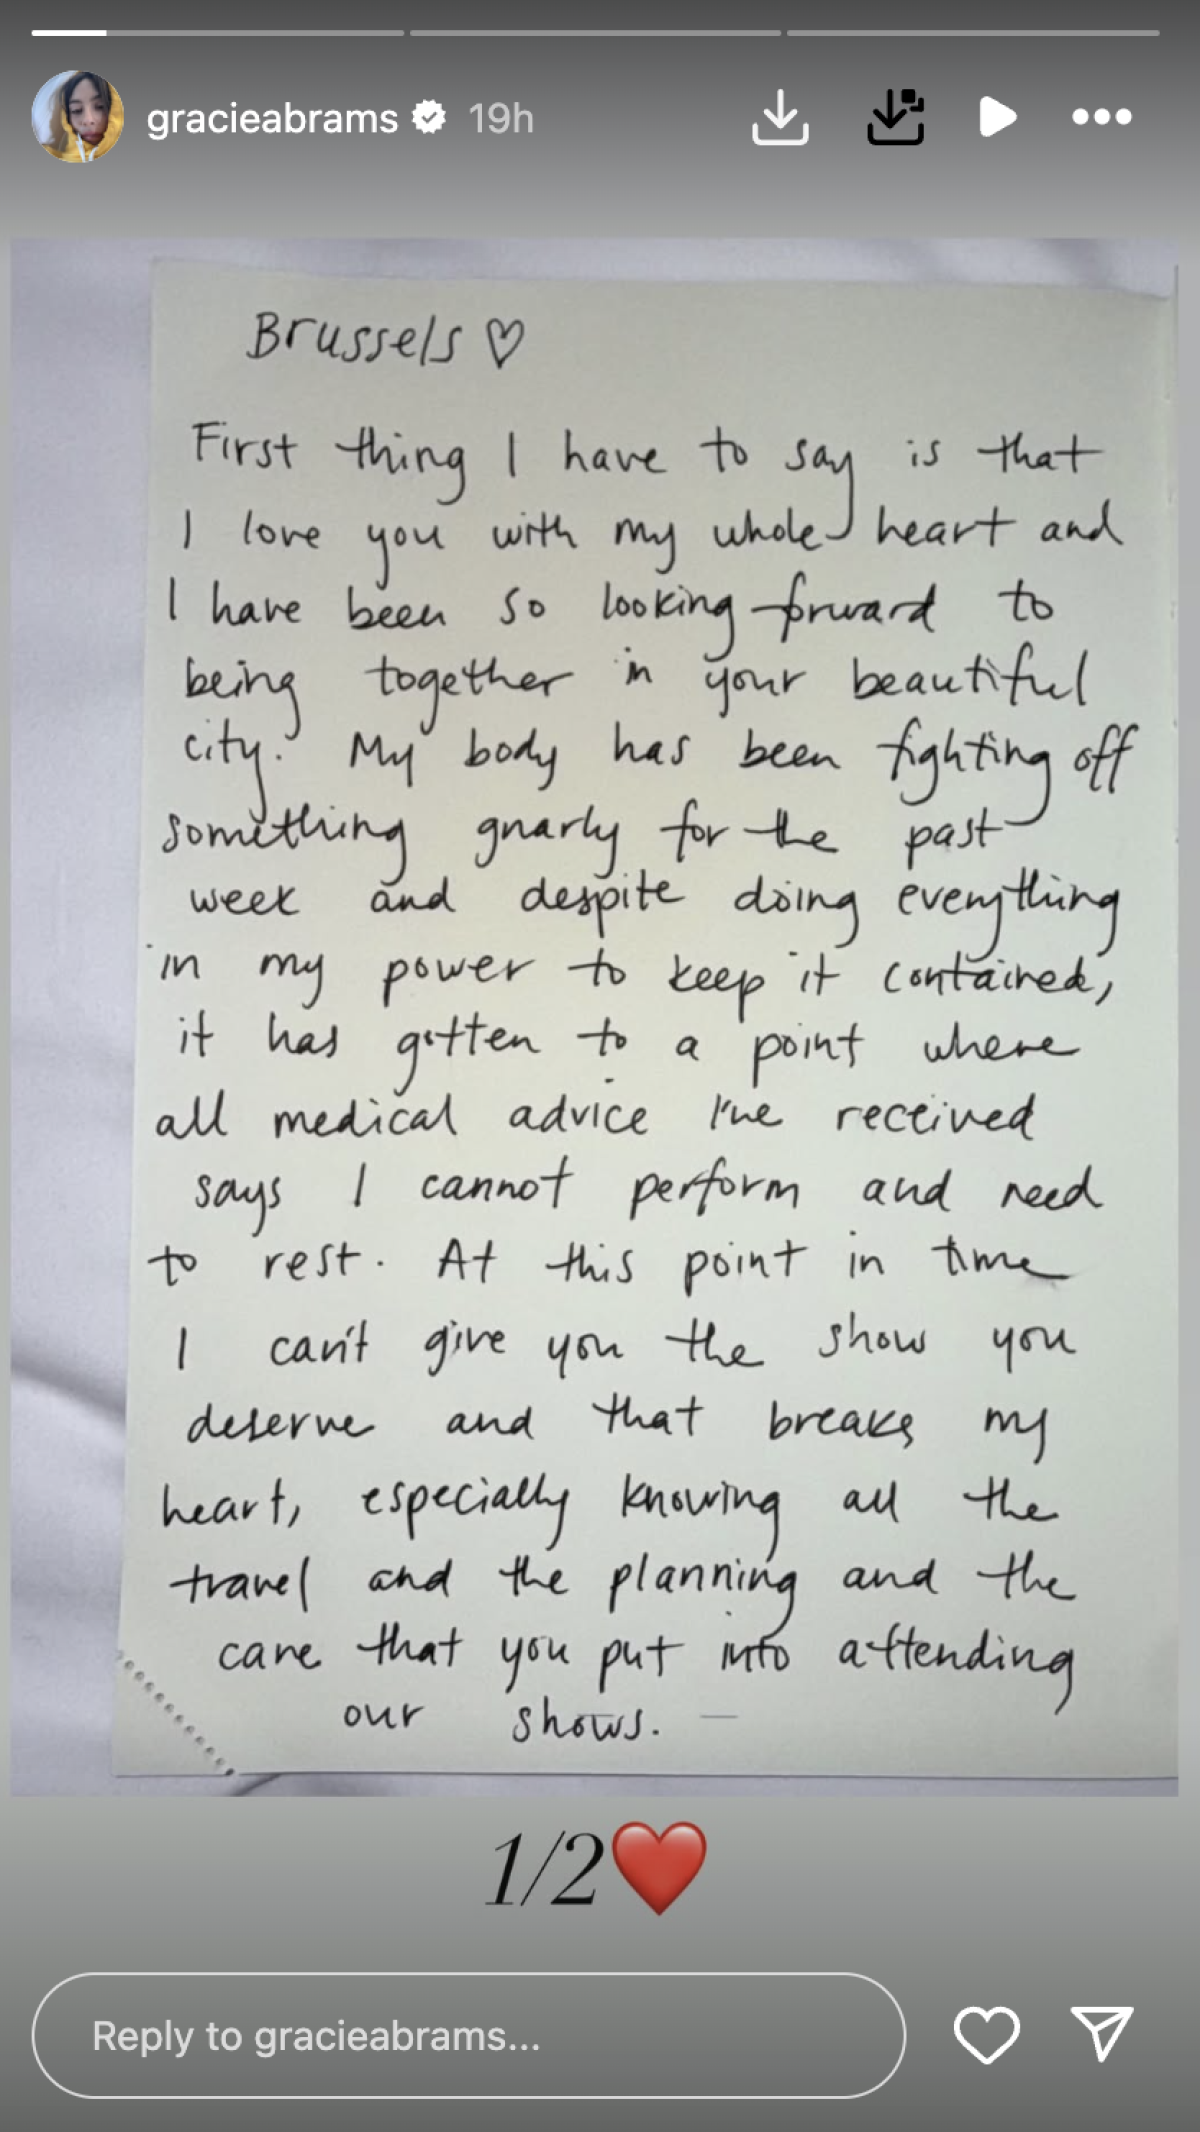 gracieabrams 19h
Brussels ♡
First thing I have to say is that
I love you with my whole heart and
I have been so looking forward to
being together in your beautiful
city. My body has been fighting off
something gnarly for the past
week and despite doing everything
in my power to keep it contained,
it has gotten to a point where
all medical advice I've received
says I cannot perform and need
to rest. At this point in time
I can't give you the show you
deserve and that breaks my
heart, especially knowing all the
travel and the planning and the
care that you put into attending
our shows. —
1/2❤️
Reply to gracieabrams...